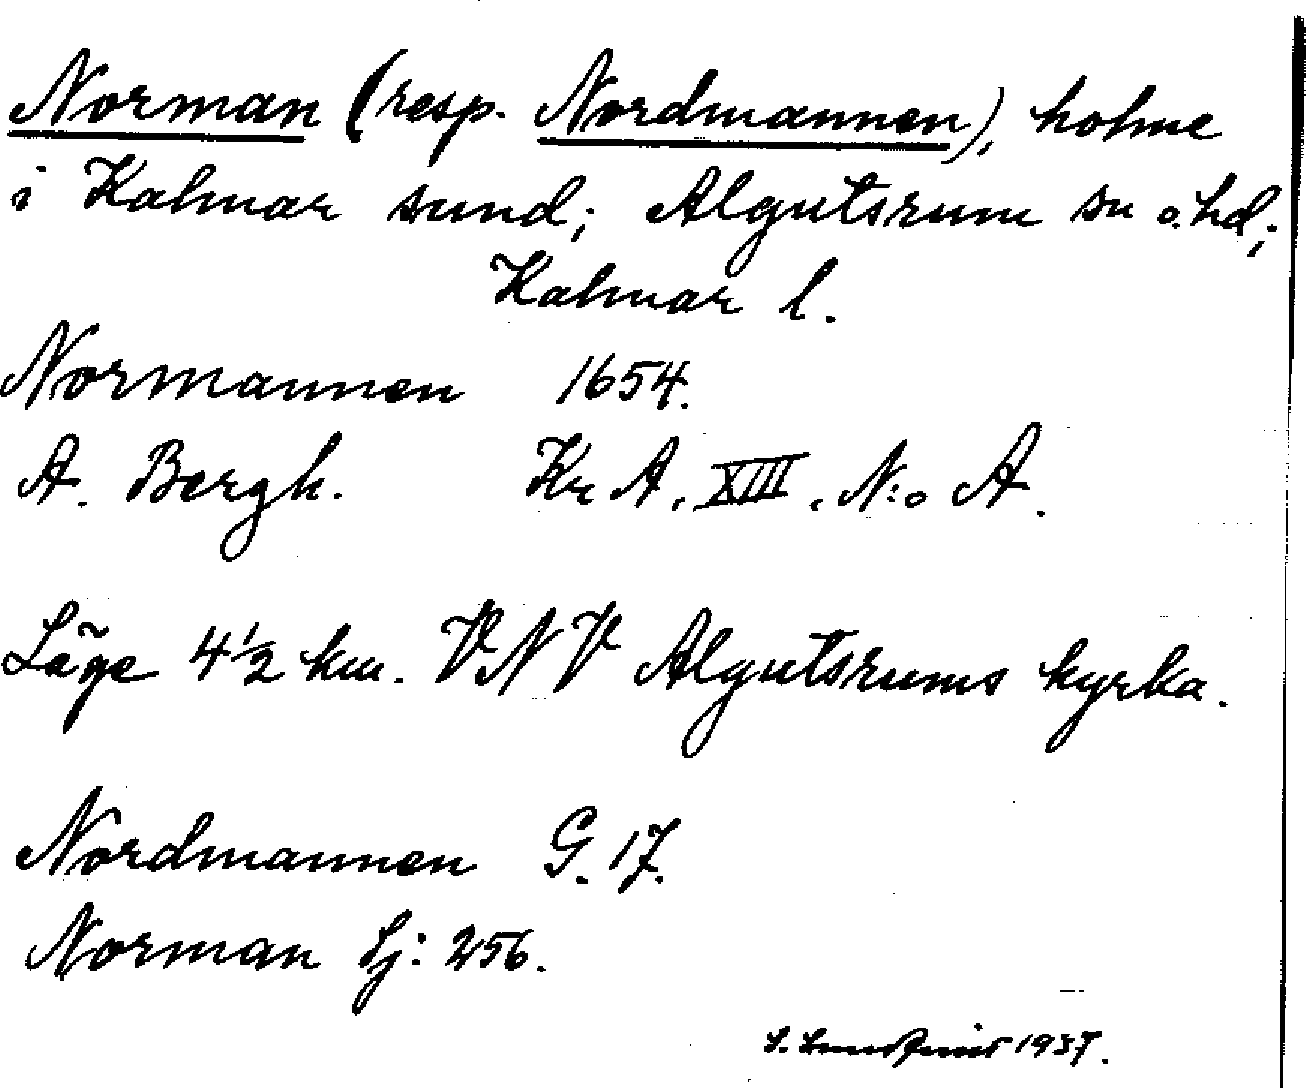 Norman (resp. Nordmannen), holme
i Kalmar sund; Algutsrum sn o. hd;
Kalmar l.
Normannen 1654.
A. Bergh. Kr A. XIII. N:o A.
Läge 4 1/2 km. VNV Algutsrums kyrka.
Nordmannen G. 17.
Norman Sj: 256.
1937.